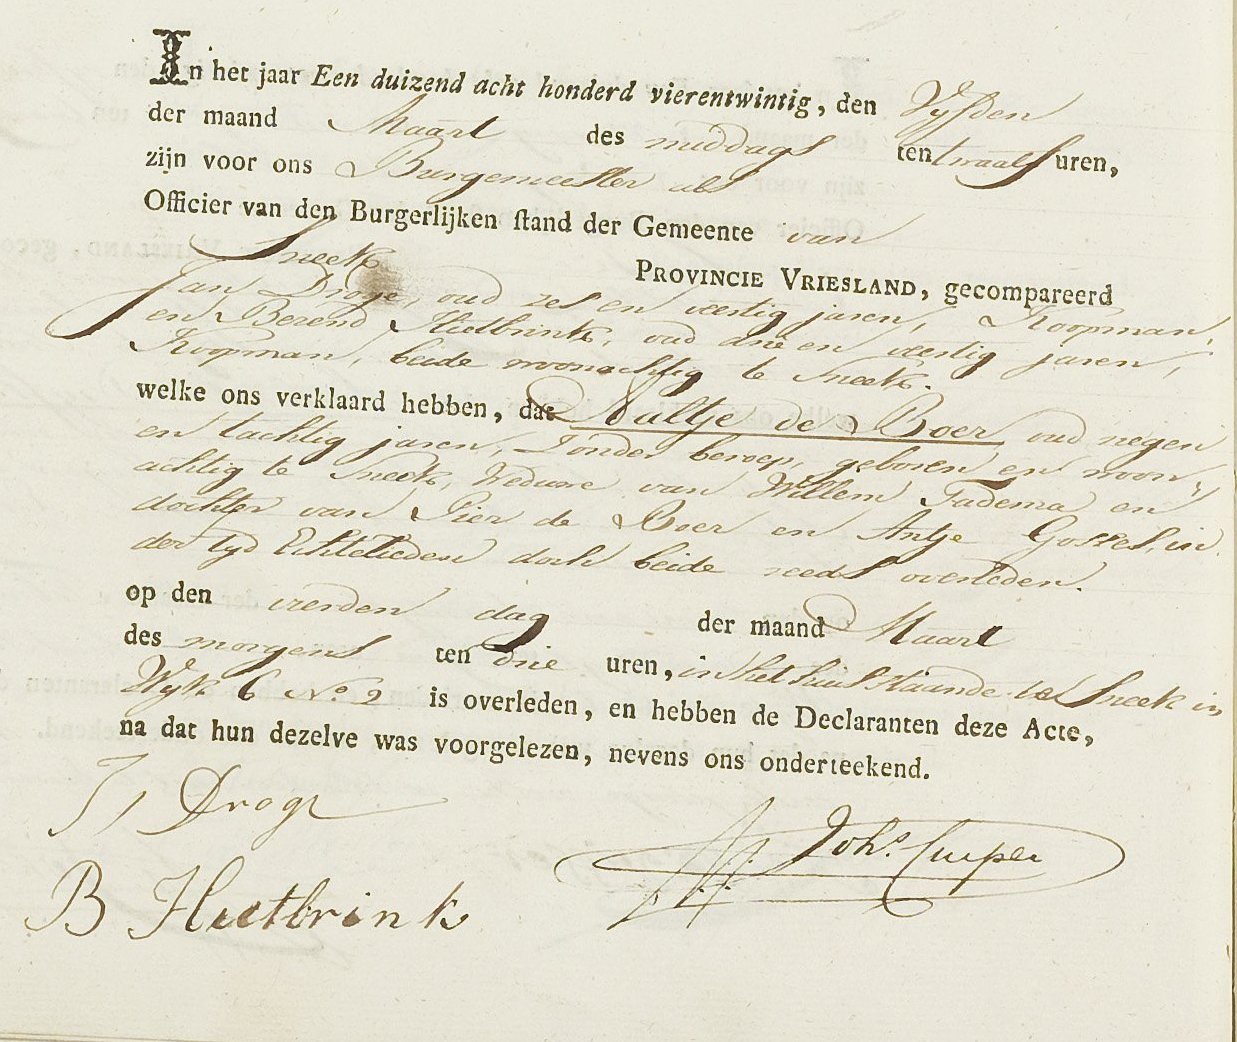 In het jaar Een duizend acht honderd vierentwintig, den Vyfden
der maand Maart des middags ten twaalf uren,
zijn voor ons Burgemeester als
Officier van den Burgerlijken stand der Gemeente van
Sneek PROVINCIE VRIESLAND, gecompareerd
Jan Droge oud zes en veertig jaren, Koopman,
en Berend Hietbrink, oud drie en veertig jaren,
Koopman, beide woonachtig te Sneek.
welke ons verklaard hebben, dat Aultje de Boer oud negen
en tachtig jaren, Zonder beroep, geboren en woon,
achtig te Sneek, Weduwe van Willem Tadema en
dochter van Pier de Boer en Antje Gosses, in
der tyd Echtelieden doch beide reeds overleden.
op den vierden dag der maand Maart
des morgens ten drie uren, in het huis staande te Sneek in
Wyk 6 No. 2 is overleden, en hebben de Declaranten deze Acte,
na dat hun dezelve was voorgelezen, nevens ons onderteekend.
J, Droge
Johs. Cuiper
B Hietbrink